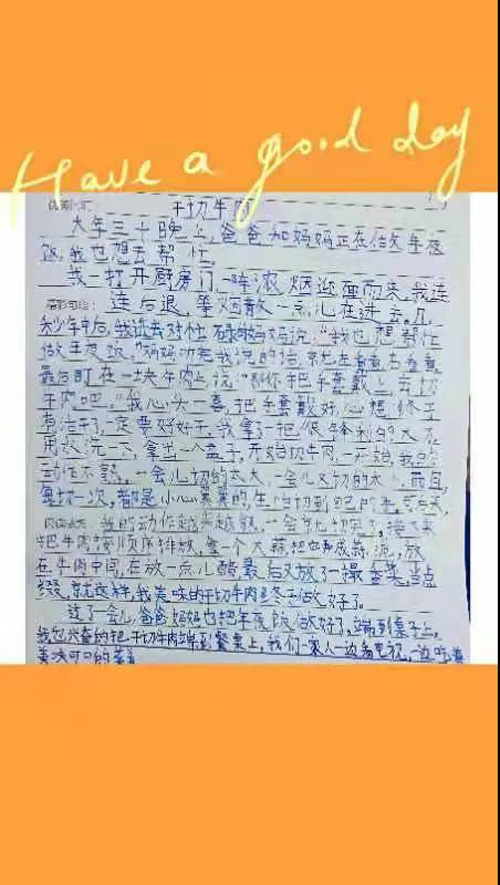 Have a good day
优美词汇
干切牛肉
大年三十晚上,爸爸和妈妈正在做年夜
饭,我也想去帮忙。
我一打开厨房门,一阵浓烟迎面而来,我连
精彩句段: 连后退,等烟散一点儿在进去。几
分钟后,我进去对忙碌的妈妈说:“我也想帮忙
做年夜饭。”妈妈听完我说的话,左看看右看看,
最后盯在一块牛肉上说:“你把手套戴上去切
牛肉吧。”我心头一喜,把手套戴好,心想终于
有活干了,一定要好好干,我拿了一把很锋利的大刀,
用水洗一下,拿出一个盘子,开始切牛肉,一开始,我的
动作不熟,一会儿切的太大,一会儿又切的太小,而且,
每切一次,都是小心翼翼的,生怕切到
我的动作越来越熟,一会就切完了,接下来
把牛肉按顺序排放,拿一个大蒜把它弄成蒜泥,放
在牛肉中间,在放一点儿醋最后又放了一撮香菜当点
缀,就这样,我美味的干切牛肉终于做好了。
过了一会儿,爸爸妈妈也把年夜饭做好了,端到桌子上,
我也兴奋的把干切牛肉端到餐桌上,我们一家人一边看电视,一边吃着
美味可口的